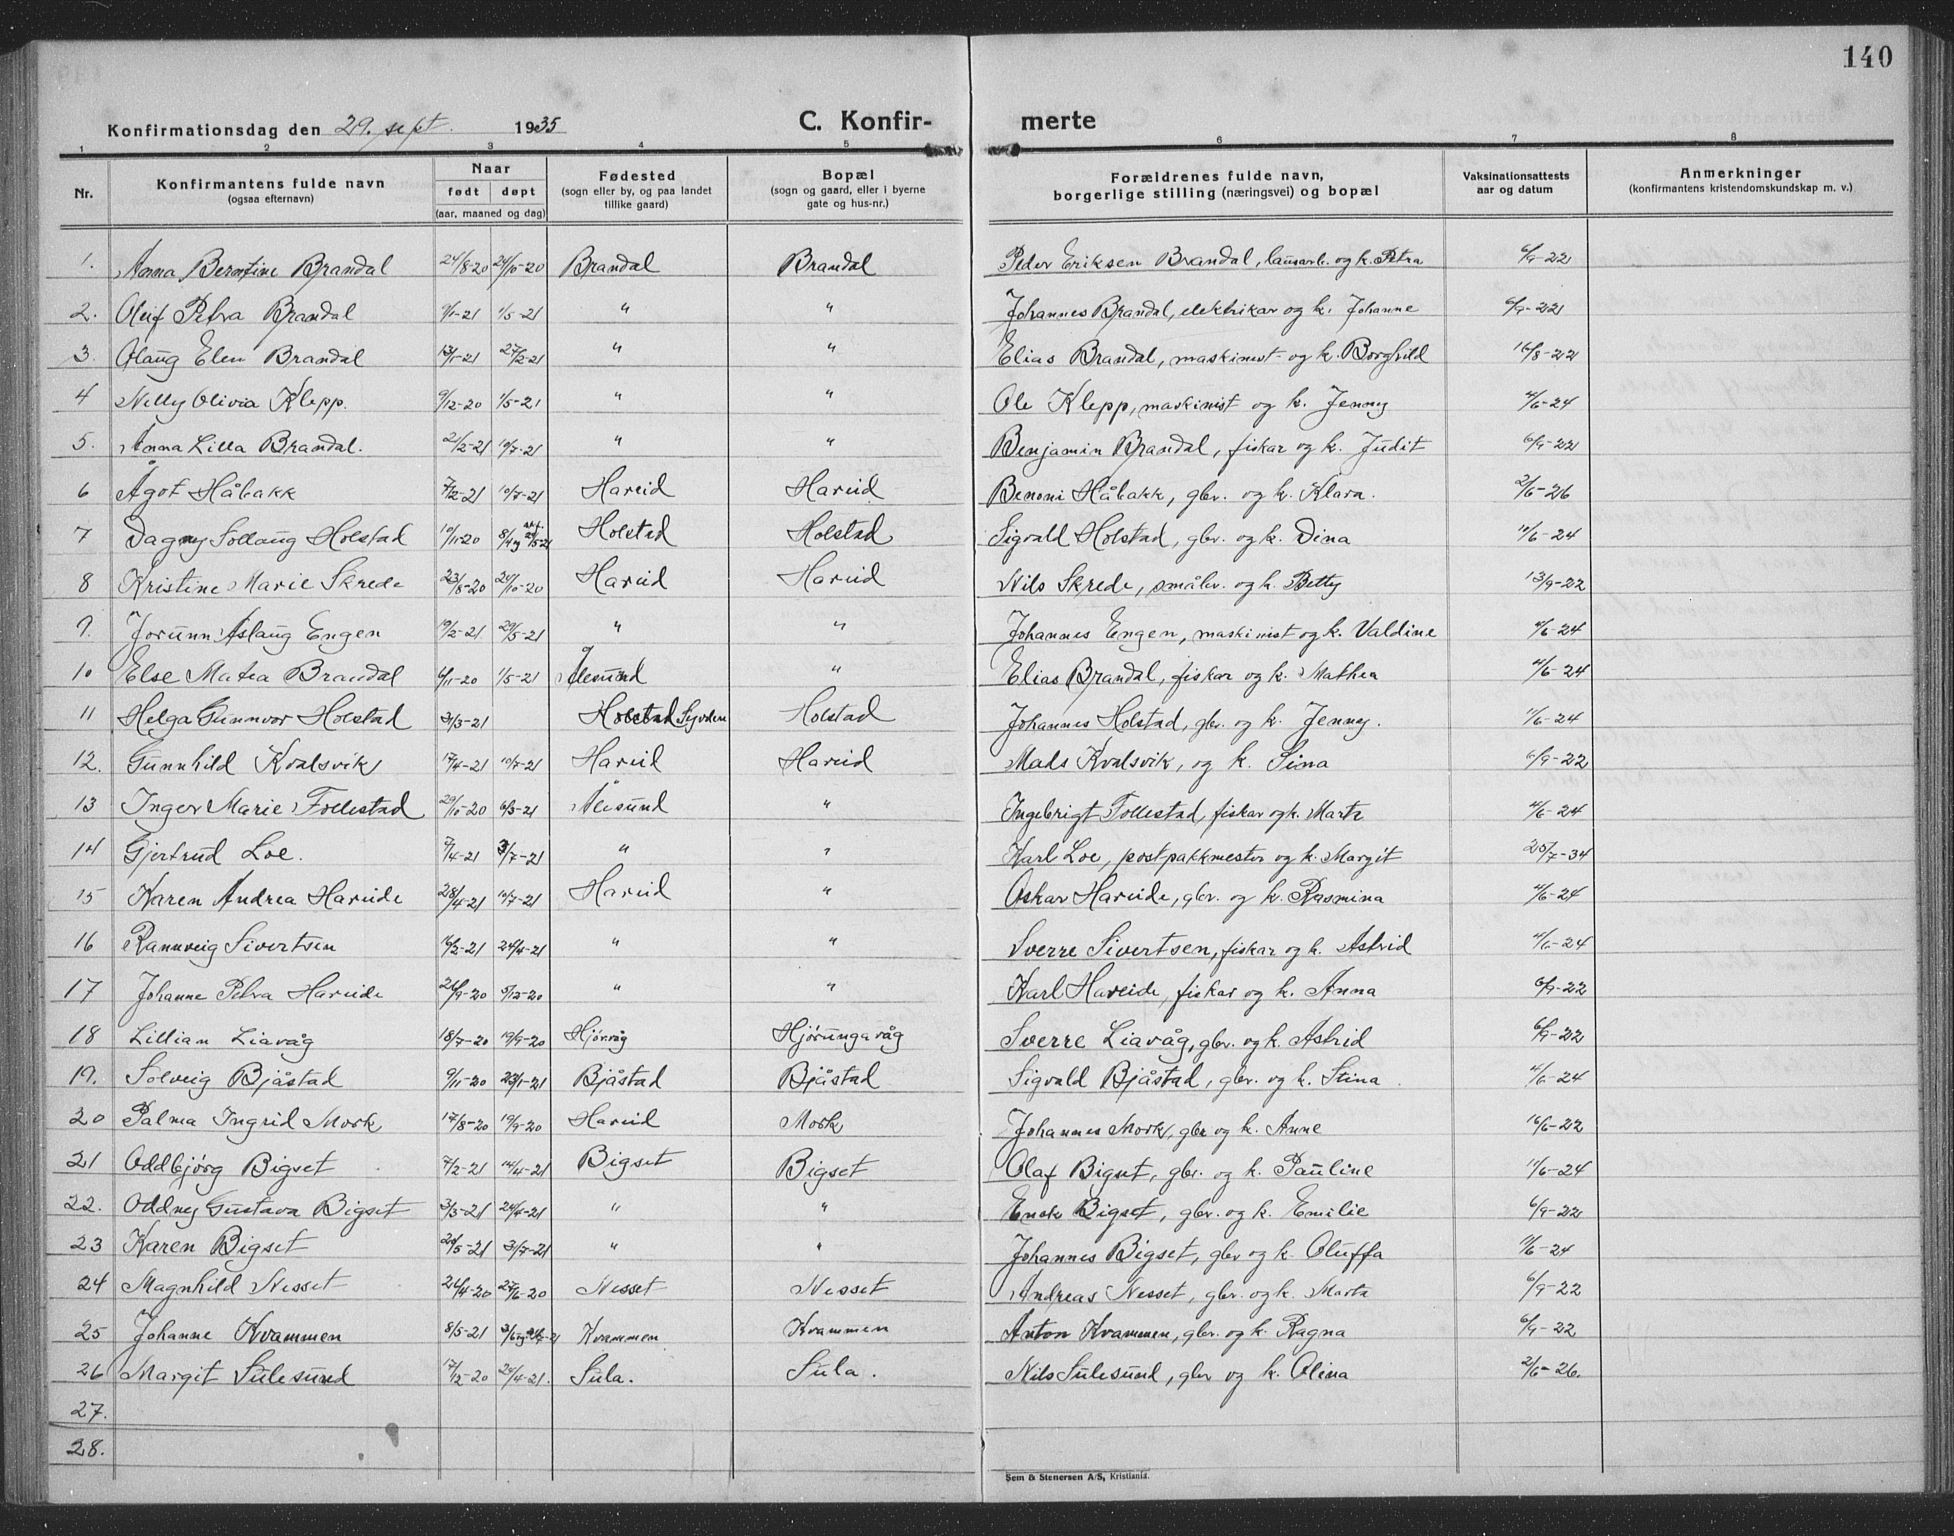 140
Konfirmationsdag den 29. sept. 1935 C. Konfirmerte
1 2 3 4 5 6 7 8
Nr. Konfirmantens fulde navn (ogsaa efternavn) Naar født døpt (aar, maaned og dag) Fødested (sogn eller by, og paa landet tillike gaard) Bopæl (sogn og gaard, eller i byerne gate og hus-nr.) Forældrenes fulde navn, borgerlige stilling (næringsvei) og bopæl Vaksinationsattests aar og datum Anmerkninger (konfirmantens kristendomskundskap m. v.)
1. Anna Berntine Brandal 24/8-20 24/10-20 Brandal Brandal Peder Eriksen Brandal, lausarb. og k. Petra 6/9-22
2. Oleif Petra Brandal 9/1-21 1/5-21 " " Johannes Brandal, elektrikar og k. Johanne 6/9-22
3. Olaug Elen Brandal 13/1-21 27/2-21 " " Elias Brandal, maskinist og k. Borghild 16/8-22
4 Nelly Olivia Klepp. 9/12-20 1/5-21 " " Ole Klepp, maskinist og k. Jenny 4/6-24
5. Anna Lilla Brandal. 21/2-21 10/7-21 " " Benjamin Brandal, fiskar og k. Judit 6/9-22
6 Ågot Håbakk 7/2-21 10/7-21 Hareid Hareid Benoni Håbakk, gbr. og k. Klara. 2/6-26
7 Dagny Sollaug Holstad 10/11-20 Holstad Holstad Sigvald Holstad, gbr. og k. Dina 12/6-24
8 Kristine Marie Skrede 23/8-20 24/10-20 Hareid Hareid Nils Skrede, småbr. og k. Betty 13/9-22
9. Jorunn Aslaug Engen 19/2-21 29/5-21 " " Johannes Engen, maskinist og k. Valdine 4/6-24
10 Else Matea Brandal 6/11-20 1/5-21 Ålesund " Elias Brandal, fiskar og k. Mathea 4/6-24
11 Helga Gunnvor Holstad 31/3-21 Syvden Holstad Johannes Holstad, gbr. og k. Jenny. 11/6-24
12. Gunnhild Kvalsvik 17/4-21 10/7-21 Hareid Hareid Mads Kvalsvik, og k. Sina 6/9-22
13 Inger Marie Follestad 29/10-20 6/3-21 Ålesund " Ingebrigt Follestad, fiskar og k. Marta 4/6-24
14 Gjertrud Loe. 7/4-21 3/7-21 " " Karl Loe, postpakkmester og k. Margit 25/7-34
15 Karen Andrea Hareide 28/4-21 10/7-21 Hareid " Oskar Hareide, gbr. og k. Rasmina 4/6-24
16 Rannveig Sivertsen 16/2-21 24/4-21 " " Sverre Sivertsen, fiskar og k. Astrid 4/6-24
17 Johanne Petra Hareide 26/9-20 5/12-20 " " Karl Hareide, fiskar og k. Anna 6/9-22
18 Lillian Liavåg 18/7-20 19/9-20 Hjørvåg Hjørungavåg Sverre Liavåg, gbr. og k. Astrid 6/9-22
19. Solveig Bjåstad 9/11-20 23/1-21 Bjåstad Bjåstad Sigvald Bjåstad, gbr. og k. Stina 4/6-24
20 Palma Ingrid Mork 17/8-20 19/9-20 Hareid Mork Johannes Mork, gbr og k. Anne 16/6-22
21 Oddbjørg Bigset 7/2-21 14/4-21 Bigset Bigset Olaf Bigset, gbr. og k. Pauline 11/6-24
22. Oddny Gustava Bigset 3/3-21 24/4-21 " " Enok Bigset, gbr. og k. Emilie 6/9-22
23 Karen Bigset 20/5-21 3/7-21 " " Johannes Bigset, gbr og k. Oluffa 11/6-24
24 Magnhild Nesset 24/4-20 27/6-20 Nesset Nesset Andreas Nesset, gbr. og k. Marta 6/9-22
25 Johanne Kvammen 8/5-21 Kvammen Kvammen Anton Kvammen, gbr. og k. Ragna 6/9-22
26 Margit Sulesund 17/12-20 24/4-21. Sula. Sula. Nils Sulesund, gbr og k. Olina 2/6-26.
27.
28.
Sem & Stenersen A/S, Kristiania.